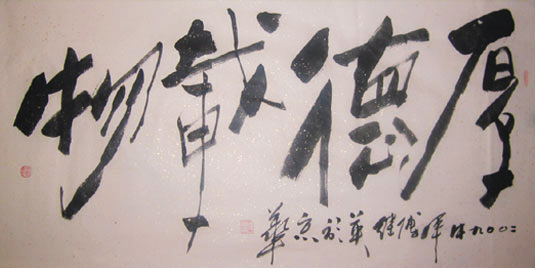 厚德載物
二〇〇九年 英於京華